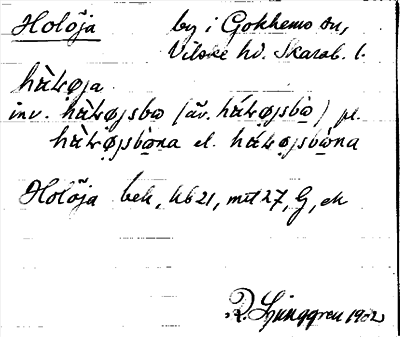 Holöja by i Gökhems sn,
Vilske hd. Skarab. l.
hàʟøja
inv. hàʟøjsbo (äv. háʟøjsbo) pl.
hàʟøjsbona el. háʟøjsbòna
Holöja bek, hb 21, mtl 27, G, ek
R. Ljunggren 1902